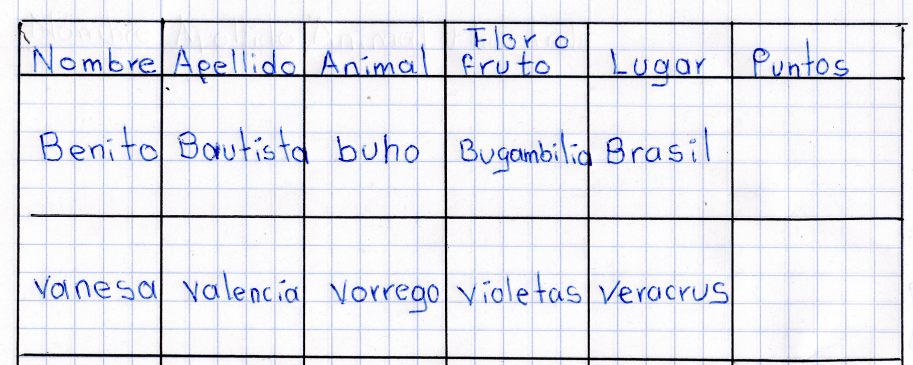 Nombre Apellido Animal Flor o fruto Lugar Puntos
Benito Bautista buho Bugambilia Brasil
vanesa valencia vorrego violetas veracrus